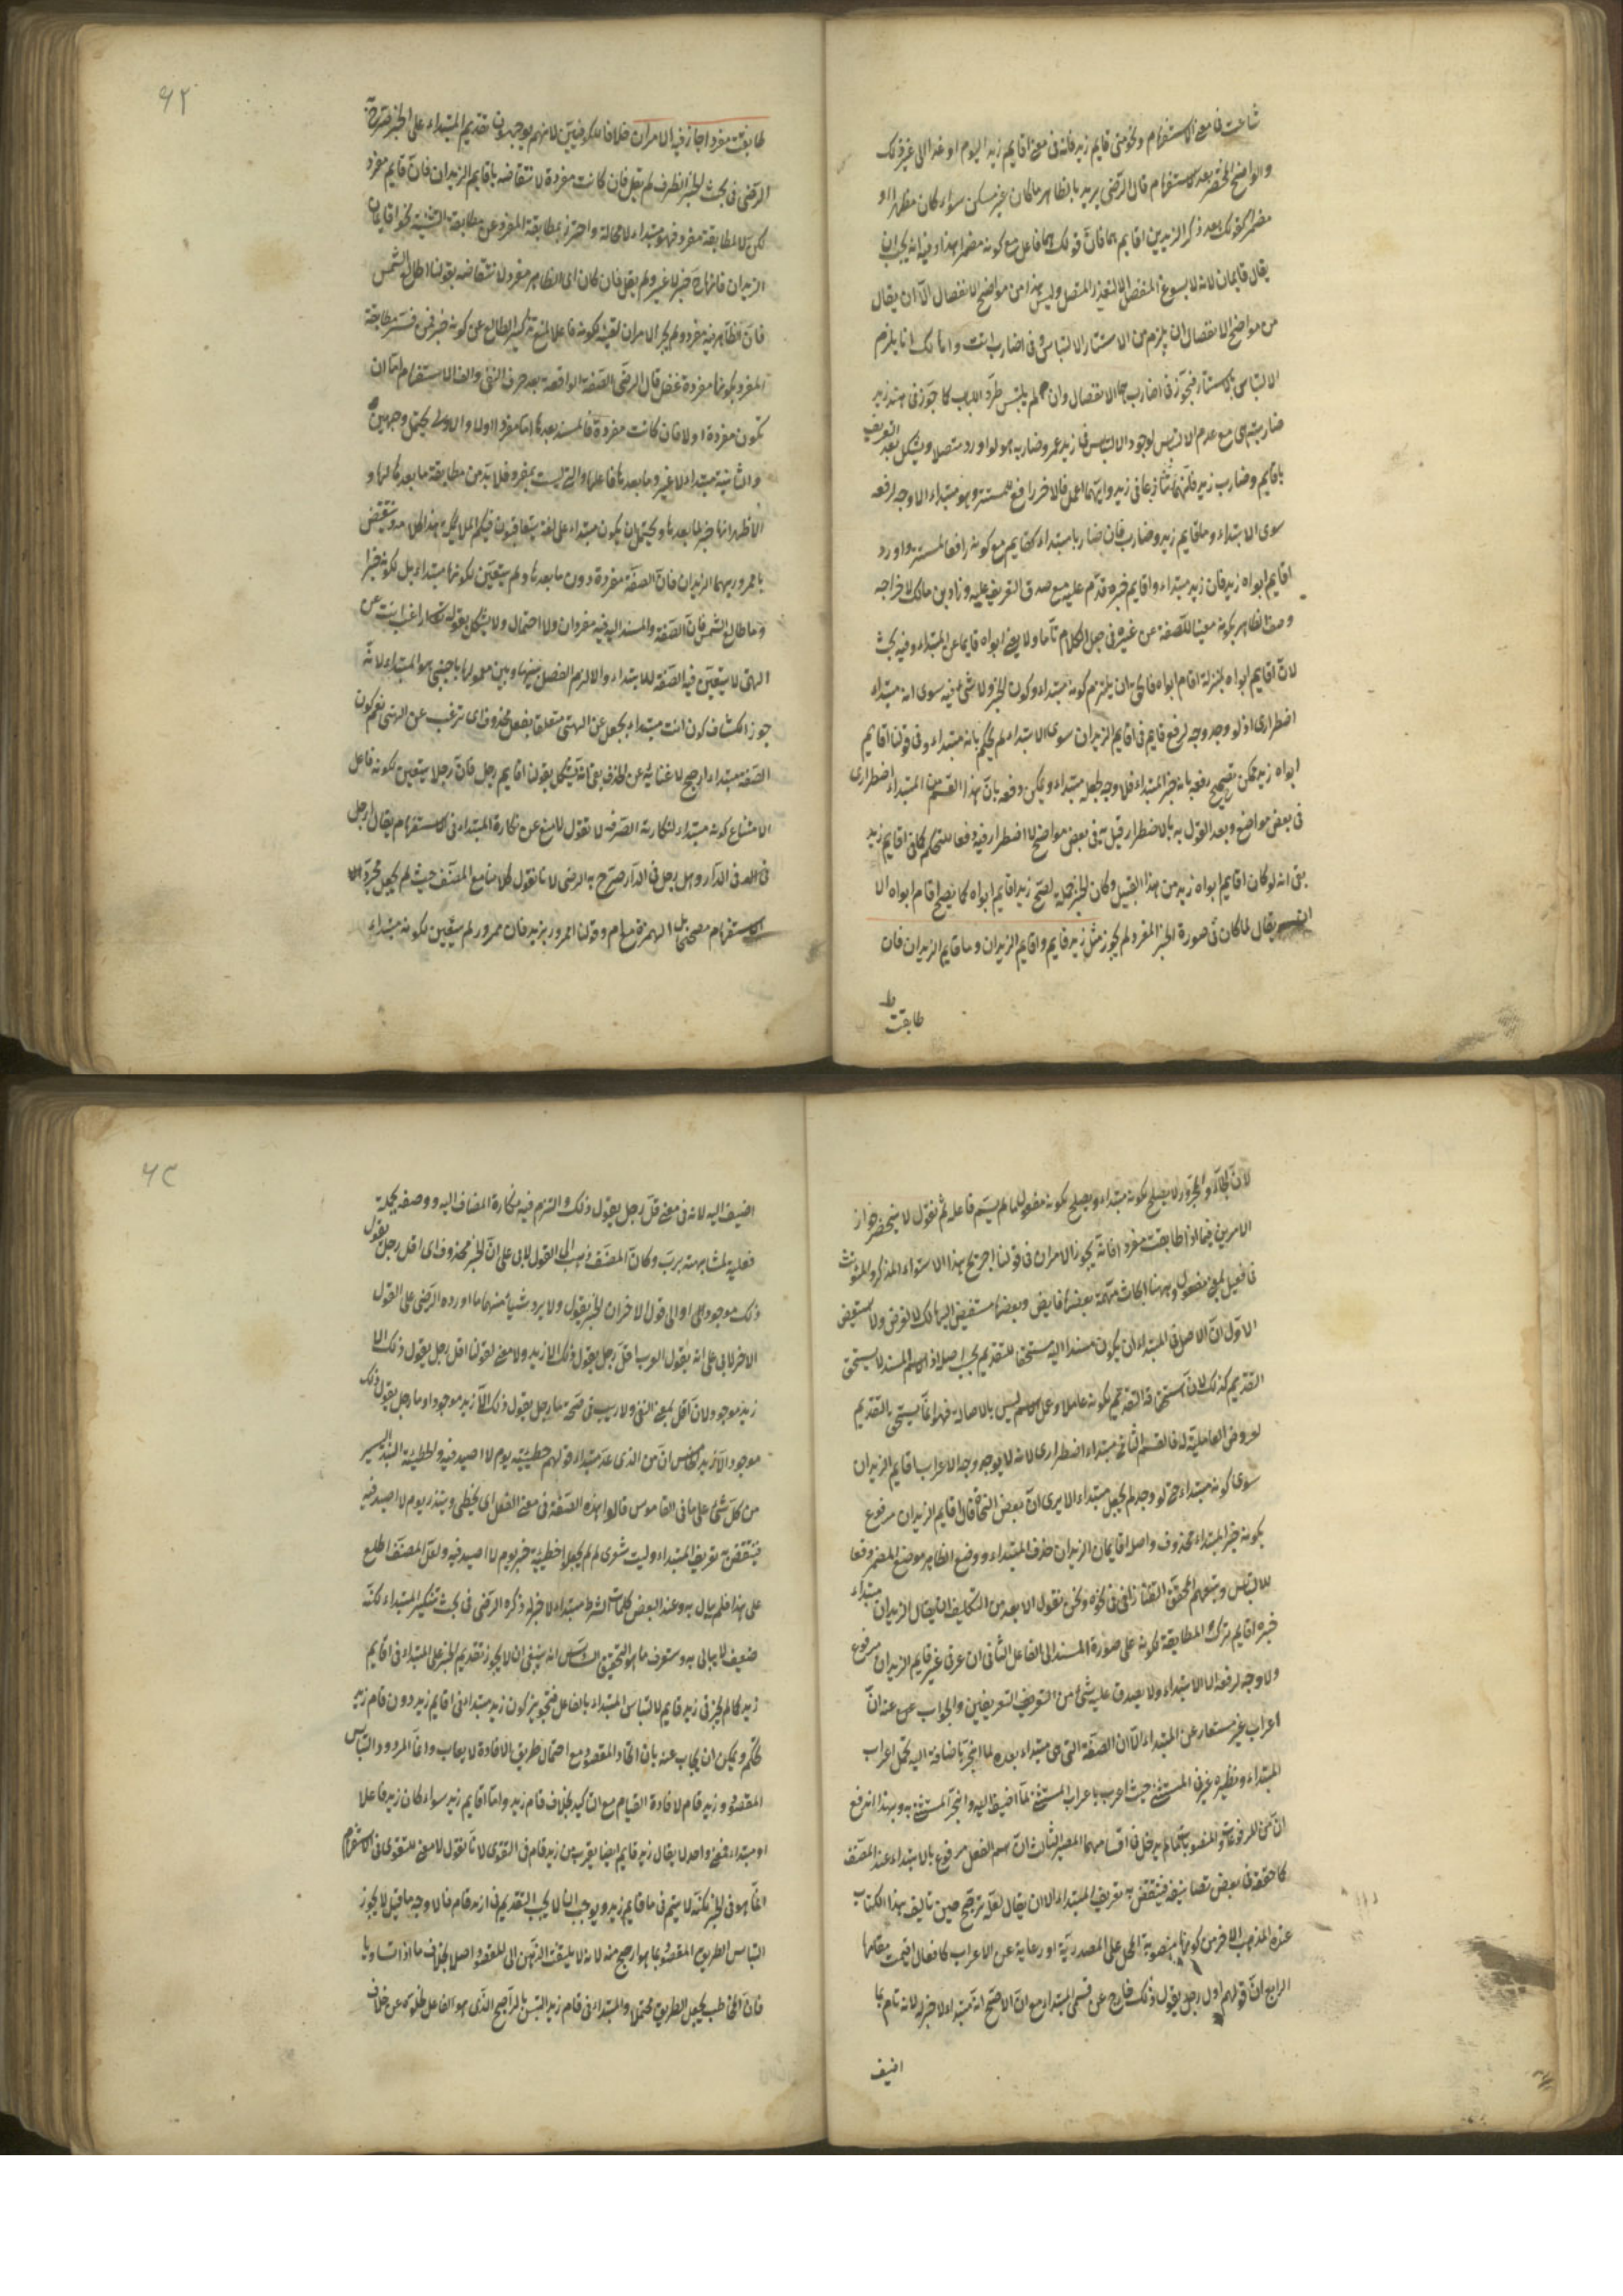 شاعت فى معنى الاستفهام ونحو متى قايم زيد فانه فى معنى اقايم زيد اليوم او غدا الى غير ذلك
والواضح المختصر بعد الاستفهام قال الرضى يريد بالظاهر ما كان غير مستكن سواء كان مظهرا او
مضمرا كقولك بعد ذكر الزيدين اقايم هما فان قولك هما فاعل مع كونه مضمرا هذا وفيه انه يجب ان
يقال قايمان لانه لا يسوغ المنفصل الا لتعذر المتصل وليس هذا من مواضع الانفصال الا ان يقال
من مواضع الانفصال ان يلزم من الاستتار الالتباس وفى اضارب انت وانا يلزم
الالتباس بالاستتار فتجوز فى اضارب هما الانفصال وان لم يلتبس طردا للباب كما جوز فى هند زيد
ضاربته هى مع عدم الالتباس لوجود الالتباس فى زيد عمرو ضاربه هو لو اورد متصلا ويشكل بعد التعريف
باقايم وضارب زيد فانهما تنازعا فى زيد وايهما اعمل فالاخر رافع للمستتر وهو مبتداء اذ لا وجه لرفعه
سوى الابتداء وما قايم زيد وضارب فان ضاربا مبتداء كقايم مع كونه رافعا لمستتر واورد
اقايم ابواه زيد فان زيد مبتداء واقايم خبره قدم عليه مع صدق التعريف عليه وزاد بن مالك لاخراجه
وصف الظاهر بكونه مغنيا للصفة عن غيره فى جعل الكلام تاما ولا يغنى ابواه قايما عن المبتداء وفيه بحث
لان اقايم ابواه بمنزلة اقام ابواه فالحق ان يلتزم كونه مبتداء وكون الخبر ولا شئ فيه سوى انه مبتداء
اضطرارى اذ لو وجد وجه لرفع قايم فى اقايم الزيدان سوى الابتداء لم يحكم بانه مبتداء وفى قولنا اقايم
ابواه زيد يمكن تصحيح رفعه بانه خبر المبتداء فلا وجه لجعله مبتداء ويمكن دفعه بان هذا القسم من المبتداء اضطرارى
فى بعض مواضع وبعد القول به بالاضطرار قيل به فى بعض مواضع لا اضطرار فيه دفعا للتحكم كما فى اقايم زيد
بقى انه لو كان اقايم ابواه زيد من هذا القبيل وكان الخبر جملة لصح زيد اقايم ابواه كما يصح اقام ابواه الا
ان يقال لما كان فى صورة الخبر المفرد لم يجوز مثل زيد قايم واقايم الزيدان وما قايم الزيدان فان
طابقت
طابقت مفردا جاز فيه الامران خلافا للكوفيين لانهم يوجبون تقديم المبتداء على الخبر صرح به
الرضى فى بحث الخبر الظرف لم يقل فان كانت مفردة لانتقاضه باقايم الزيدان فان قايم مفرد
لكن لا لمطابقة مفرد فهو مبتداء لا محالة واحترز بمطابقة المفرد عن مطابقة التثنية نحو اقايمان
الزيدان فانها خبر لا غير ولم يقل فان كان اى الظاهر مفردا لانتقاضه بقولنا اطالع الشمس
فان الظاهر فيه مفرد ولم يجز الامران لتعينه لكونه فاعلا لمنع تذكير الطالع عن كونه خبرا فمن فسر مطابقة
المفرد بكونها مفردة غفل قال الرضى الصفة الواقعة بعد حرف النفى والف الاستفهام اما ان
تكون مفردة اولا فان كانت مفردة فالمسند بعدها اما مفرد اولا والاولى يحتمل وجهين
والثانية مبتداء لا غير وما بعدها فاعلها والتى ليست بمفرد فلا بد من مطابقة ما بعدها لها و
الاظهر انها خبر لما بعدها ويحتمل ان يكون مبتداء على لغة يتعاقبون فيكم الملائكة هذا كلامه وينتقض
بامرور بهما الزيدان فان الصفة مفردة دون ما بعدها ولم يتعين لكونها مبتداء بل لكونه خبرا
وما طالع الشمس فان الصفة والمسند اليه فيه مفردان ولا احتمال ولا يشكل بقوله تعالى اراغب انت عن
الهتى لا يتعين فيه الصفة للابتداء والا لزم الفصل بينها وبين معمولها باجنبى هو المبتداء لانه
جوز الكشاف كون انت مبتداء بجعل عن الهتى متعلقا بفعل محذوف اى ترغب عن الهتى نعم كون
الصفة مبتداء ارجح لاغنائه عن الحذف بقى انه يشكل بقولنا اقايم رجل فان رجلا يتعين لكونه فاعل
لامتناع كونه مبتداء لنكارته الصرفه لا نقول لا منع عن نكارة المبتداء فى الاستفهام يقال ارجل
فى الدار وهل رجل فى الدار صرح به الرضى لانا نقول كلامنا مع المصنف حيث لم يجعل مجرد
الاستفهام مصححا بل الهمزة مع ام وقولنا امرور بزيد فان ممرور لم يتعين لكونه مبتداء
لان الجار والمجرور لا يصلح لكونه مبتداء ويصلح لكونه مفعول ما لم يسم فاعله ثم نقول لا ينحصر جواز
الامرين فيما اذا طابقت مفردا فانه يجوز الامران فى قولنا اجريح هذا لاستواء المذكر والمؤنث
فى فعيل بمعنى مفعول وههنا ابحاث مهمة بعضها فايض وبعضها مستفيض
الاول ان الاصل فى المبتداء ان يكون مسندا اليه مستحقا للتقديم بحسب اصله اذ القسم المسند لا يستحق
التقديم كذلك لان استحقاقه التقديم لكونه عاملا وعمل الاسم ليس بالاصالة فهذا انما يستحق بالتقديم
لعروض العاملية له فالقسم الثانى مبتداء اضطرارى لانه لا يوجد وجه لاعراب اقايم الزيدان
سوى كونه مبتداء حتى لو وجد لم يجعل مبتداء الا يرى ان بعض النحاة قال اقايم الزيدان مرفوع
بكونه خبر المبتداء محذوف واصله اقايمان الزيدان حذف المبتداء ووضع الظاهر موضع المضمر دفعا
للالتباس وتبعهم المحقق التفتازانى فى نحوه ونحن نقول الابعد من التكليف ان يقال الزيدان مبتداء
خبره اقايم ترك المطابقة لكونه على صورة المسند الى الفاعل الثانى ان غير فى غير قايم الزيدان مرفوع
ولا وجه لرفعه الا الابتداء ولا يصدق عليه شئ من التعريفين والجواب عنه ان
اعراب غير مستعار عن المبتداء لان الصفة التى هى مبتداء بعده لما انجر باضافة اليه تحمل اعراب
المبتداء ونظيره غير فى المستثنى حيث اعرب باعراب المستثنى لما اضيف اليه وانجر المستثنى به وبهذا اندفع
ان من المرفوعات والمنصوبات ما لم يدخل فى اقسامهما المعتبر الثالث ان اسم الفعل مرفوع بالابتداء عند المصنف
كما حققه فى بعض تصانيفه فينتقض به تعريف المبتداء الا ان يقال لعله ترجح حين تاليف هذا الكتاب
عنده المذهب الاخر من كونها منصوبة المحل على المصدرية او رعاية عن الاعراب كافعال اقيمت مقامها
الرابع ان قولهم اقل رجل يقول ذلك خارج عن قسمى المبتداء مع ان الاصح انه مبتداء لا خبر له لانه تام بما
اضيف
اضيف اليه لانه فى معنى قل رجل يقول ذلك والتزم فيه نكارة المضاف اليه ووصفه بجملة
فعلية لمشابهته برب وكان المصنف ذهب الى القول لابى على ان الخبر محذوف اى اقل رجل يقول
ذلك موجود او الى قول الاخر ان الخبر يقول ولا يرد شيأ منهما ما اورده الرضى على القول
الاخر لابى على انه يقول العرب اقل رجل يقول ذلك الا زيد ولا معنى لقولنا اقل رجل يقول ذلك الا
زيد موجود لان اقل بمعنى النفى ولا ريب فى صحة ما رجل يقول ذلك الا زيد موجود او ما رجل يقول ذلك
موجود الا زيد الخامس ان من الذى عد مبتداء قولهم خطيئة يوم لا اصيد فيه والخطيئة النبذ اليسير
من كل شئ على ما فى القاموس قالوا هذه الصفة فى معنى الفعل اى يخطئ ويندر يوم لا اصيد فيه
فينتقض به تعريف المبتداء وليت شعرى لم لم يجعلوا خطيئة خبر يوم لا اصيد فيه ولعل المصنف اطلع
على هذا فلم يبال به وعند البعض كلمات الشرط مبتداء لا خبر له ذكره الرضى فى بحث تنكير المبتداء لكنه
ضعيف لا يبالى به وستعرف ما هو التحقيق السادس انه ينبغى ان لا يجوز تقديم الخبر على المبتداء فى اقايم
زيد كما لم يجز فى زيد قايم لالتباس المبتداء بالفاعل فتجويز كون زيد مبتداء فى اقايم زيد دون قام زيد
تحكم ويمكن ان يجاب عنه بان اتحاد المقصود مع احتمال طريق الافادة لا يعاب وانما المردود التباس
المقصود وزيد قام لافادة القيام مع التاكيد بخلاف قام زيد واما اقايم زيد سواء كان زيد فاعلا
او مبتداء فمعنى واحد لا يقال زيد قايم ايضا يقرب من زيد قام فى التقوى لانا نقول لا معنى للتقوى فى الاستفهام
انما هو فى الخبر لكنه لا يتم فى ما قايم زيد ويوجب ان لا يجب التقديم فى ازيد قام فالاوجه ما قيل لا يجوز
التباس الطريق المقصود بما هو ارجح منه لانه لا يلتفت الذهن الى المقصود اصلا بخلاف ما اذا تساويا
فان المخاطب يجعل الطريق محتملا والمبتداء فى قام زيد التبس بالراجح الذى هو الفاعل لخلوه عن خلاف